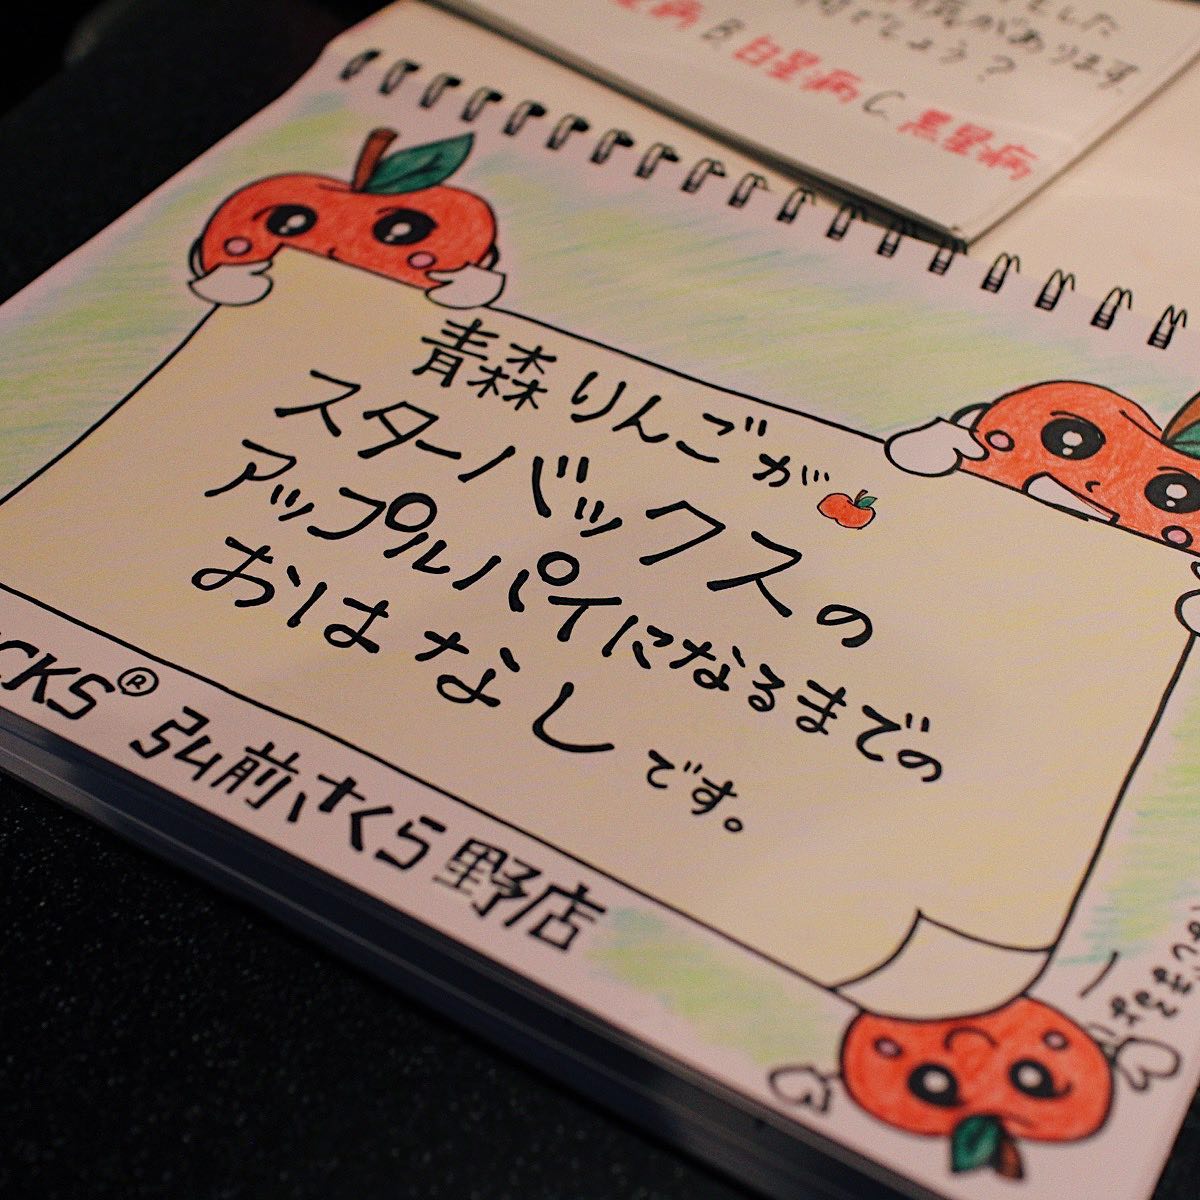 した
があります。
でしょう?
病 B.白星病 C.黒星病
青森りんごが
スターバックスの
アップルパイになるまでの
おはなしです。
CKS® 弘前さくら野店